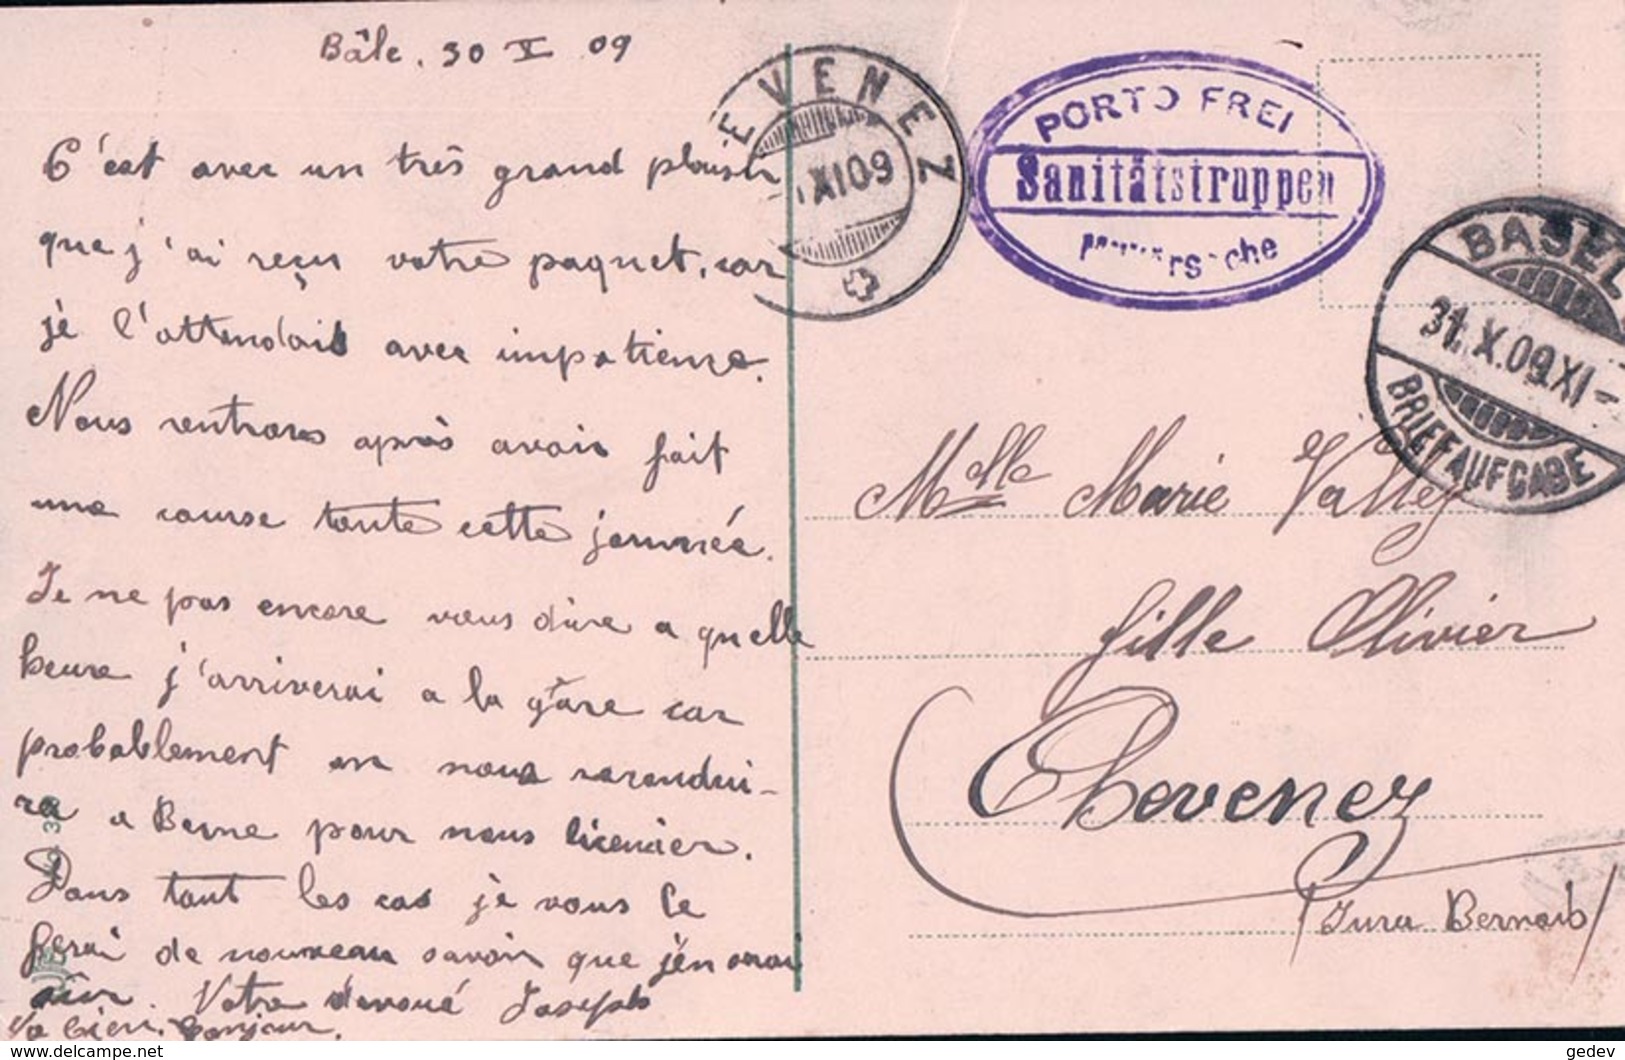 Bâle. 30 X 09
C'est avec un très grand plaisir
que j'ai reçu votre paquet, car
je l'attendais avec impatience.
Nous rentrons après avoir fait
une course toute cette journée.
Je ne pas encore vous dire a quelle
heure j'arriverai a la gare car
probablement on nous
ra a Berne pour nous licencier.
Dans tout les cas je vous le
ferai de nouveau savoir que j'en serai
sûr. Votre dévoué Joseph
Va bien. bonjour.
EVENEZ
XI09
PORTO FREI
Sanitätstruppen
BASEL
31.X.09.XI-
BRIEFAUFGABE
Mlle Marie Vallez
fille Olivier
Chevenez
(Jura Bernois)
gedev